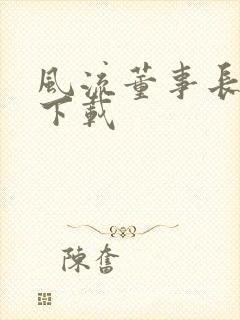 風流董事長
下載
陳奮